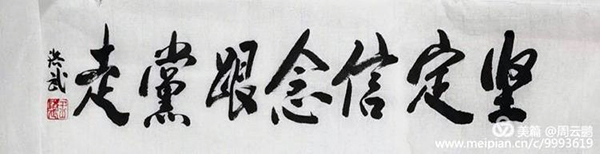 坚定信念跟黨走
洪武
美篇@周云鹏
www.meipian.cn/c/9993619